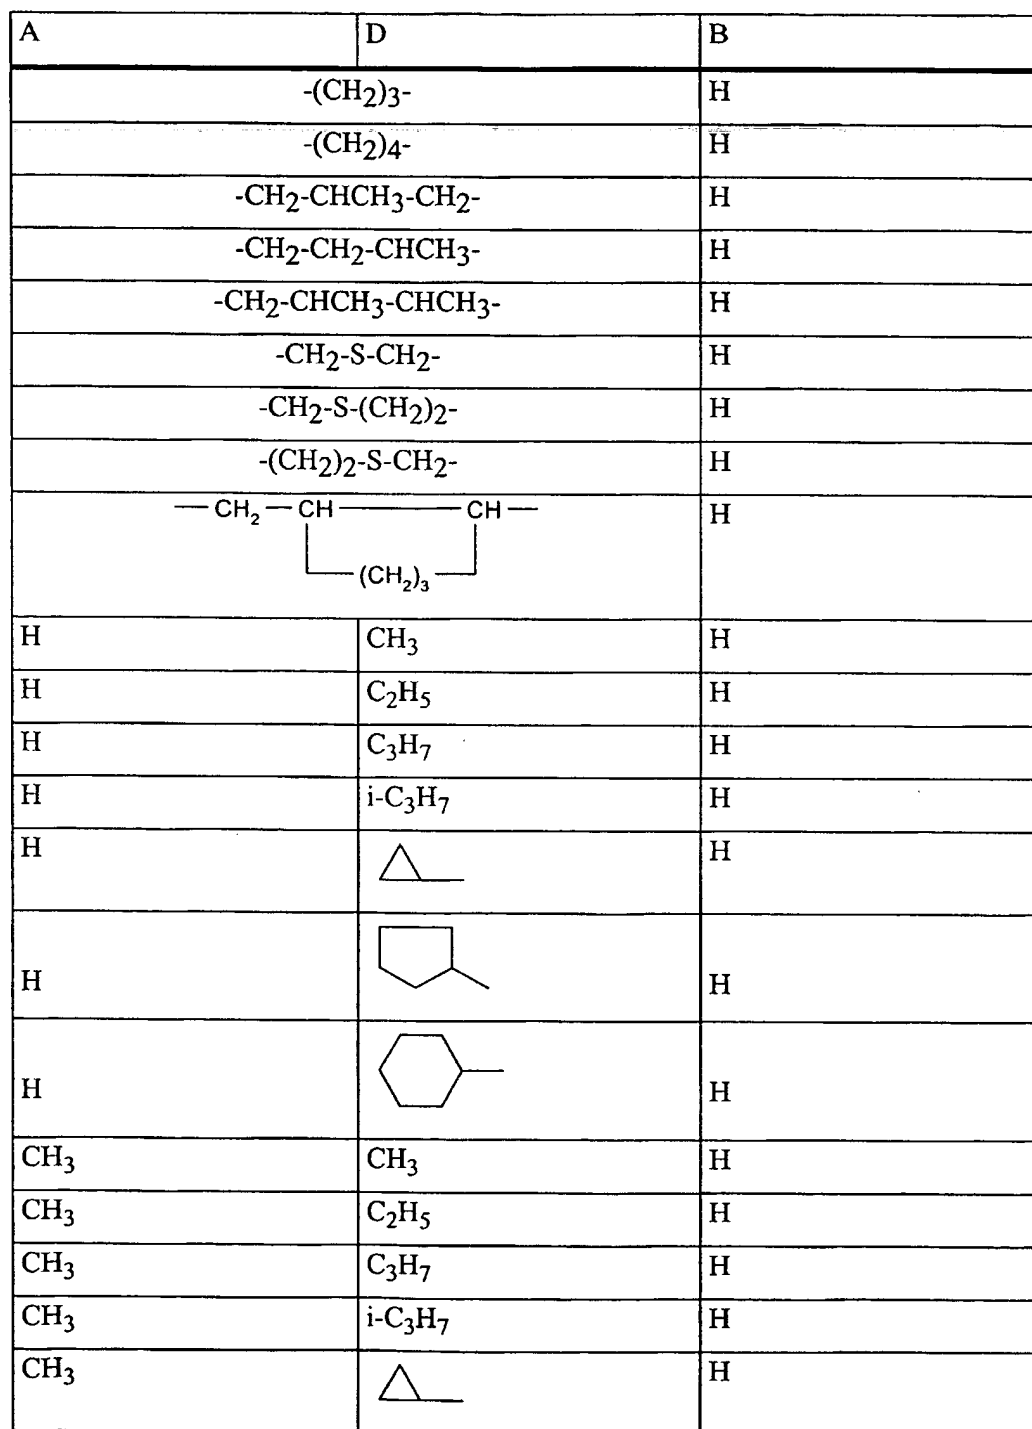 A D B
-(CH2)3- H
-(CH2)4- H
-CH2-CHCH3-CH2- H
-CH2-CH2-CHCH3- H
-CH2-CHCH3-CHCH3- H
-CH2-S-CH2- H
-CH2-S-(CH2)2- H
-(CH2)2-S-CH2- H
—CH2—CH——CH— H
(CH2)3
H CH3 H
H C2H5 H
H C3H7 H
H i-C3H7 H
H H
H H
H H
CH3 CH3 H
CH3 C2H5 H
CH3 C3H7 H
CH3 i-C3H7 H
CH3 H